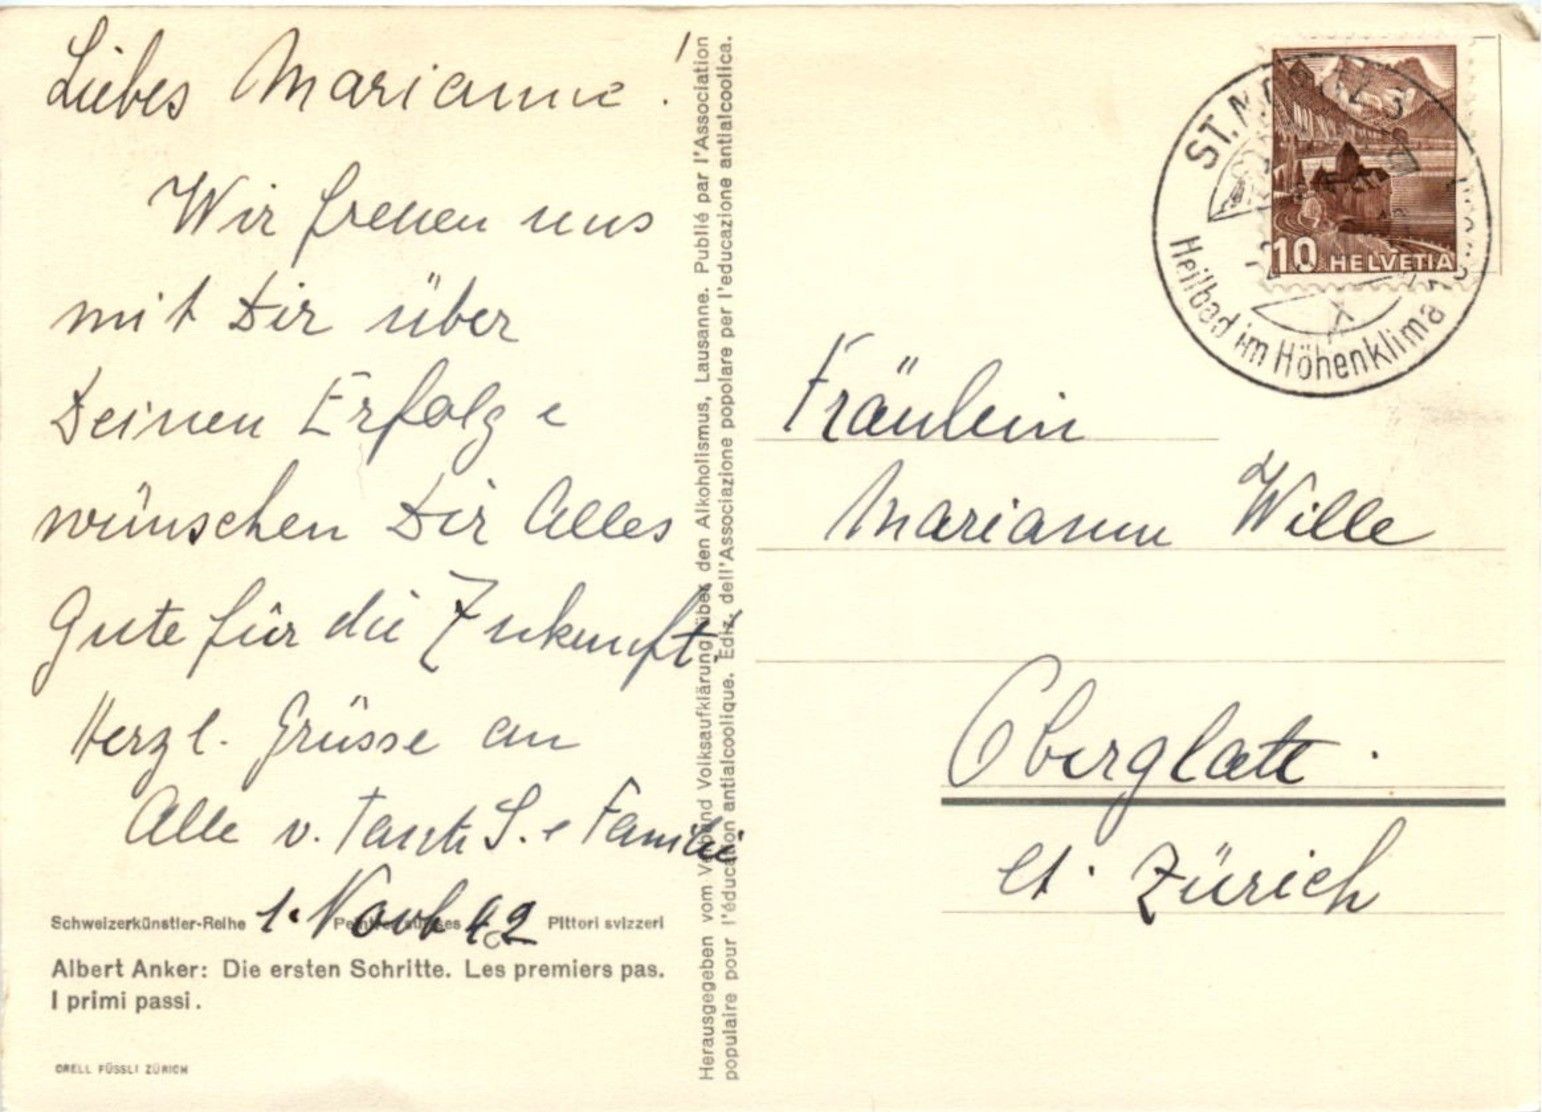 Liebes Marianne!
Wir freuen uns
mit Dir über
Deinen Erfolg e
wünschen Dir Alles
Gute für die Zukunft.
Herzl. Grüsse an
Alle v. Tante S. e Familie
1. Novb 42
Schweizerkünstler-Reihe Peintres suisses Pittori svizzeri
Albert Anker: Die ersten Schritte. Les premiers pas.
I primi passi.
ORELL FÜSSLI ZÜRICH
Herausgegeben vom Verband Volksaufklärung über den Alkoholismus, Lausanne. Publié par l'Association
populaire pour l'éducation antialcoolique. Ediz. dell'Associazione popolare per l'educazione antialcoolica.
ST. MORITZ
Heilbad im Höhenklima
10 HELVETIA
Fräulein
Mariann Wille
Oberglatt.
Ct. Zürich